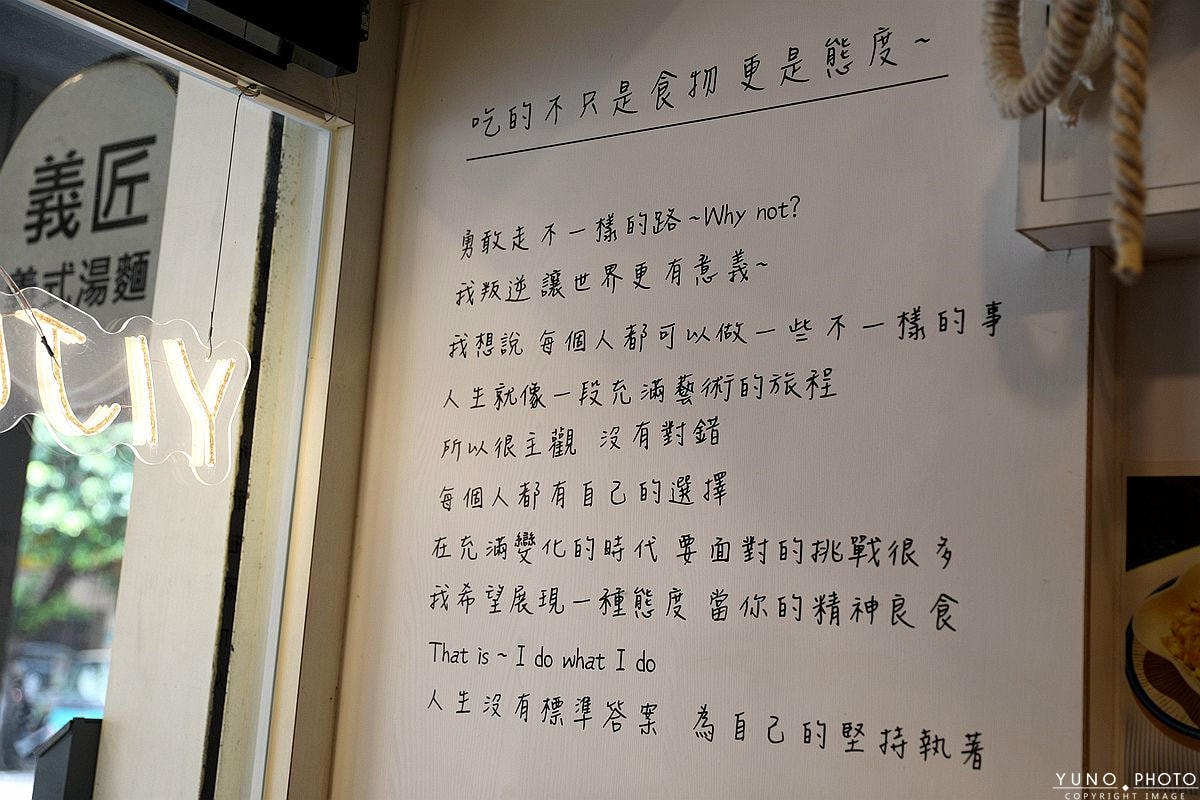 吃的不只是食物 更是態度~
勇敢走不一樣的路~Why not?
我叛逆讓世界更有意義~
我想說 每個人都可以做一些不一樣的事
人生就像一段充滿藝術的旅程
所以很主觀 沒有對錯
每個人都有自己的選擇
在充滿變化的時代 要面對的挑戰很多
我希望展現一種態度 當你的精神良食
That is ~ I do what I do
人生沒有標準答案 為自己的堅持執著
義匠
義式湯麵
YUNO PHOTO
COPYRIGHT IMAGE